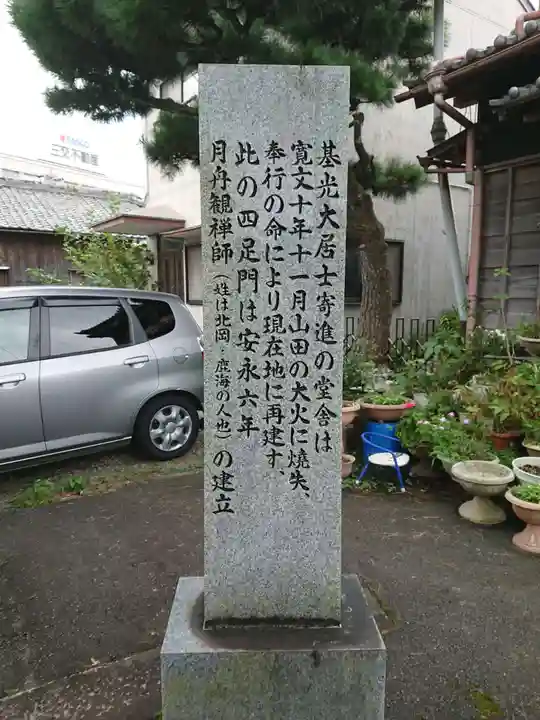 基光大居士寄進の堂舎は
寛文十年十一月山田の大火に焼失、
奉行の命により現在地に再建す、
此の四足門は安永六年
月舟観禅師(姓は北岡・鹿海の人也)の建立
三交不動産